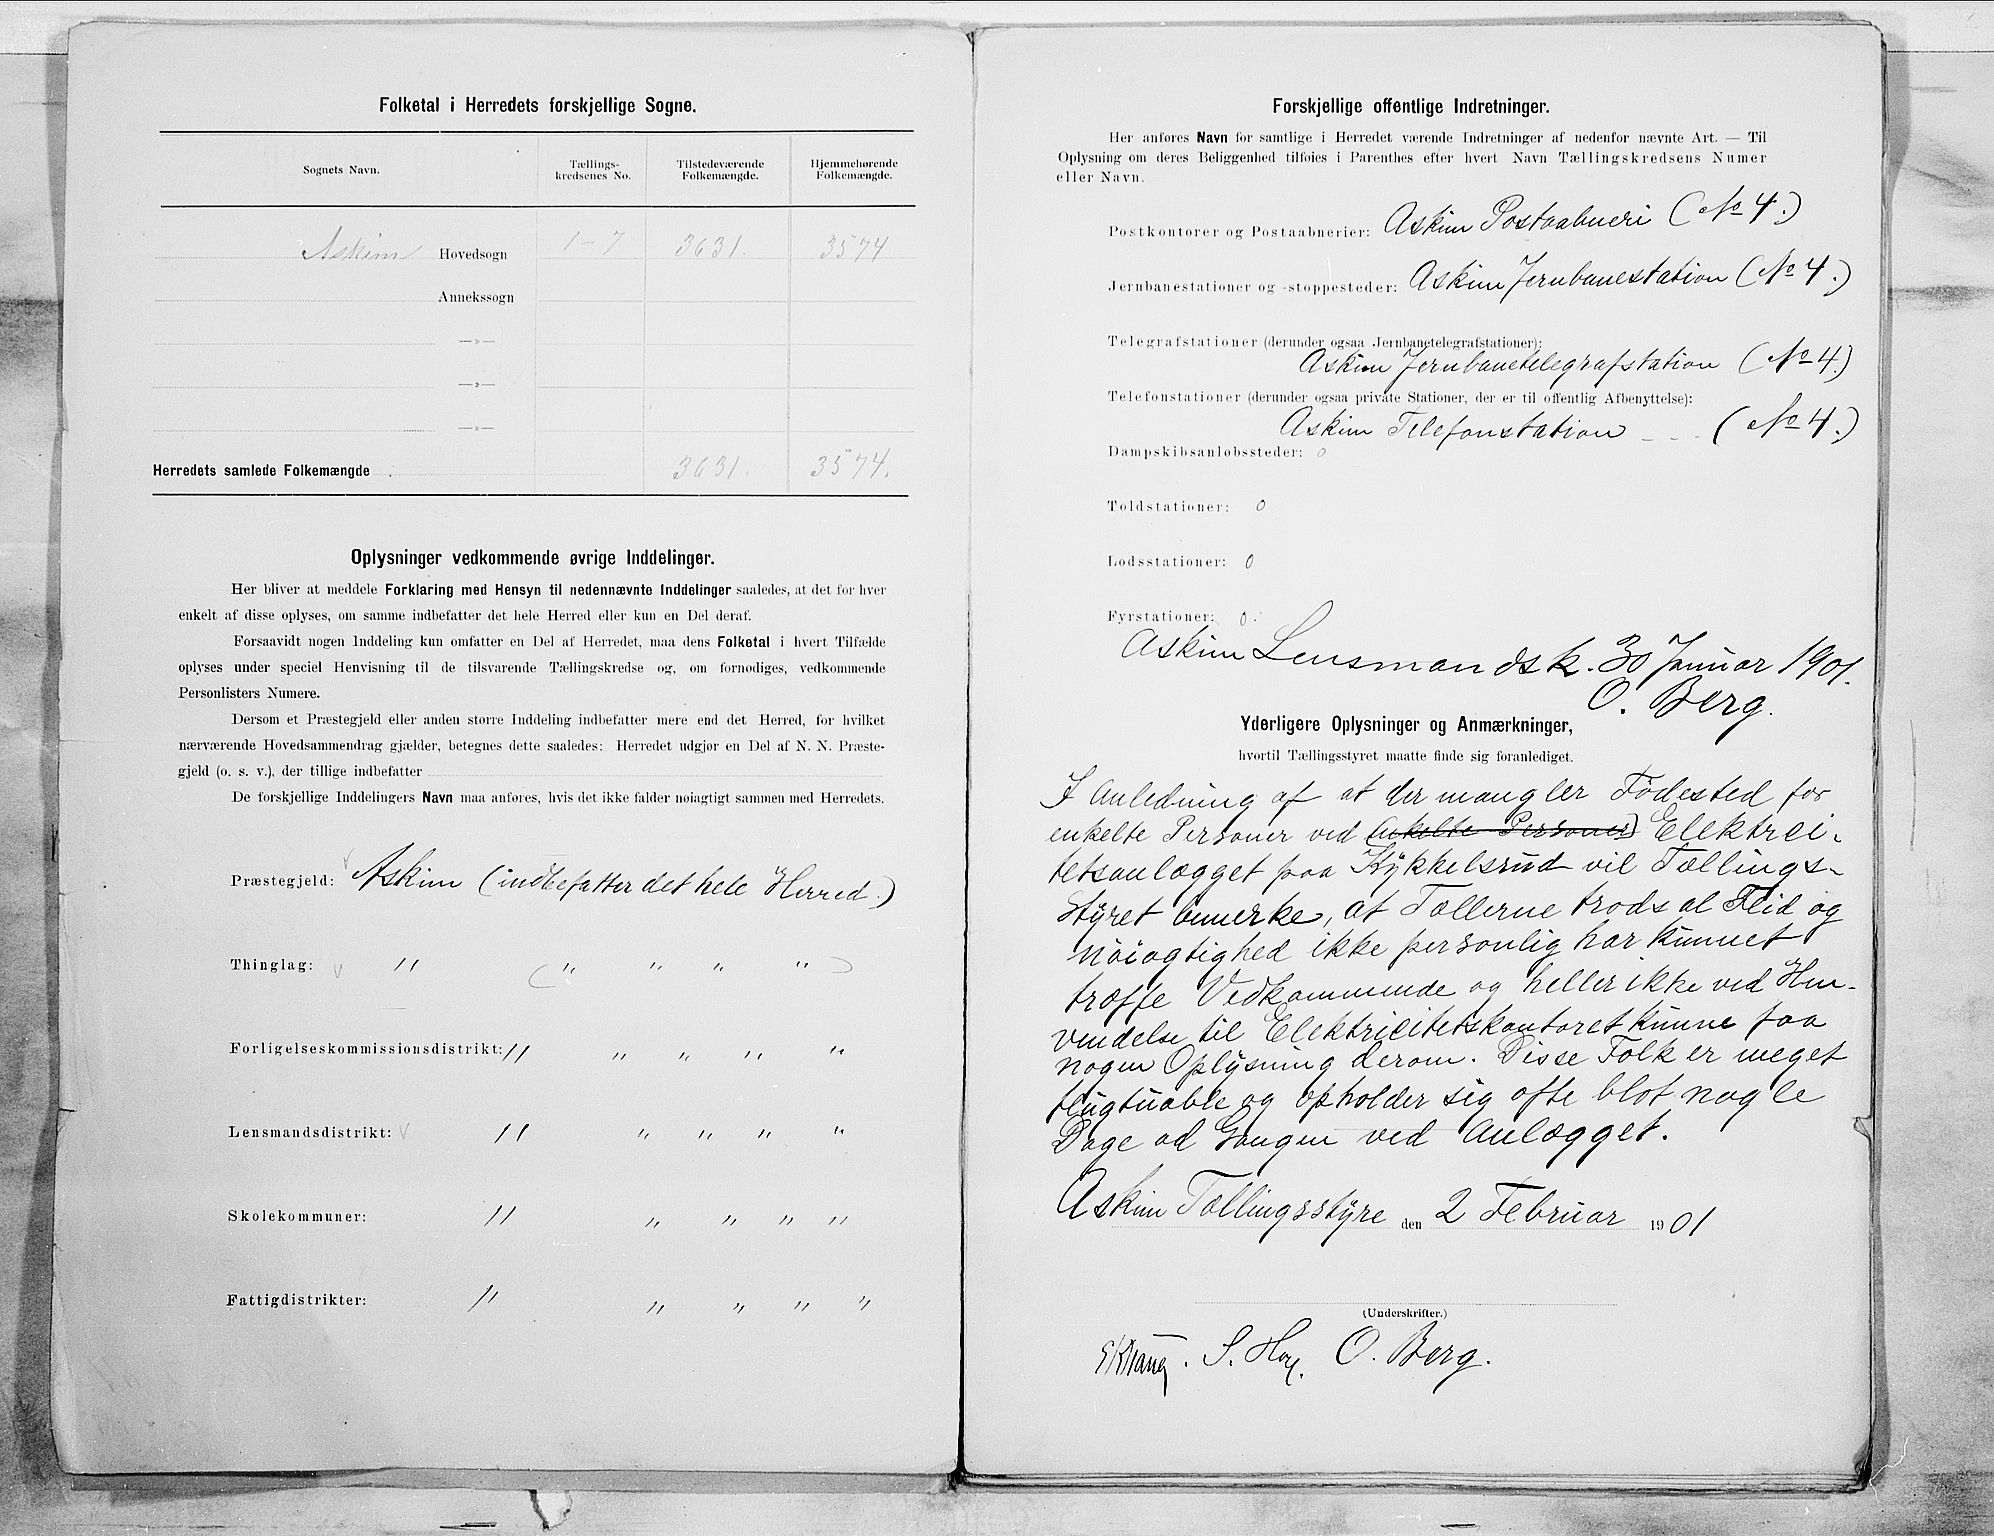 Folketal i Herredets forskjellige Sogne.
Sognets Navn. Tællings- kredsenes No. Tilstedeværende Folkemængde. Hjemmehørende Folkemængde.
Askim Hovedsogn 1-7 3631. 3574
Annekssogn
—»—
—»—
—»—
Herredets samlede Folkemængde 3631. 3574.
Oplysninger vedkommende øvrige Inddelinger.
Her bliver at meddele Forklaring med Hensyn til nedennævnte Inddelinger saaledes, at det for hver
enkelt af disse oplyses, om samme indbefatter det hele Herred eller kun en Del deraf.
Forsaavidt nogen Inddeling kun omfatter en Del af Herredet, maa dens Folketal i hvert Tilfælde
oplyses under speciel Henvisning til de tilsvarende Tællingskredse og, om fornødiges, vedkommende
Personlisters Numere.
Dersom et Præstegjeld eller anden større Inddeling indbefatter mere end det Herred, for hvilket
nærværende Hovedsammendrag gjælder, betegnes dette saaledes: Herredet udgjør en Del af N. N. Præste-
gjeld (o. s. v.), der tillige indbefatter
De forskjellige Inddelingers Navn maa anføres, hvis det ikke falder nøiagtigt sammen med Herredets.
Præstegjeld: Askim (indbefatter det hele Herred.)
Thinglag: " ( " " " " )
Forligelseskommissionsdistrikt: " " " " "
Lensmandsdistrikt: " " " " "
Skolekommuner: " " " " "
Fattigdistrikter: " " " " "
Forskjellige offentlige Indretninger.
Her anføres Navn for samtlige i Herredet værende Indretninger af nedenfor nævnte Art. — Til
Oplysning om deres Beliggenhed tilføies i Parenthes efter hvert Navn Tællingskredsens Numer
eller Navn.
Postkontorer og Postaabnerier: Askim Postaabneri (No 4.)
Jernbanestationer og -stoppesteder: Askim Jernbanestation (No 4.)
Telegrafstationer (derunder ogsaa Jernbanetelegrafstationer):
Askim Jernbanetelegrafstation (No 4.)
Telefonstationer (derunder ogsaa private Stationer, der er til offentlig Afbenyttelse):
Askim Telefonstation - - - (No 4.)
Dampskibsanløbssteder: 0
Toldstationer: 0
Lodsstationer: 0
Fyrstationer: 0.
Askim Lensmandsk. 30 Januar 1901.
O. Berg.
Yderligere Oplysninger og Anmærkninger,
hvortil Tællingsstyret maatte finde sig foranlediget.
I Anledning af at der mangler Fødested for
enkelte Personer ved (enkelte Personer) Elektrici-
tetsanlægget paa Kykkelsrud vil Tællings-
Styret bemerke, at Tællerne trods al Flid og
Nøiagtighed ikke personlig har kunnet
træffe Vedkommende og heller ikke ved Hen-
vendelse til Elektricitetskontoret kunne faa
nogen Oplysning derom. Disse Folk er meget
flugtuable og opholder sig ofte blot nogle
Dage ad Gangen ved Anlægget.
Askim Tællingsstyre den 2 Februar 1901
(Underskrifter.)
O. Berg.